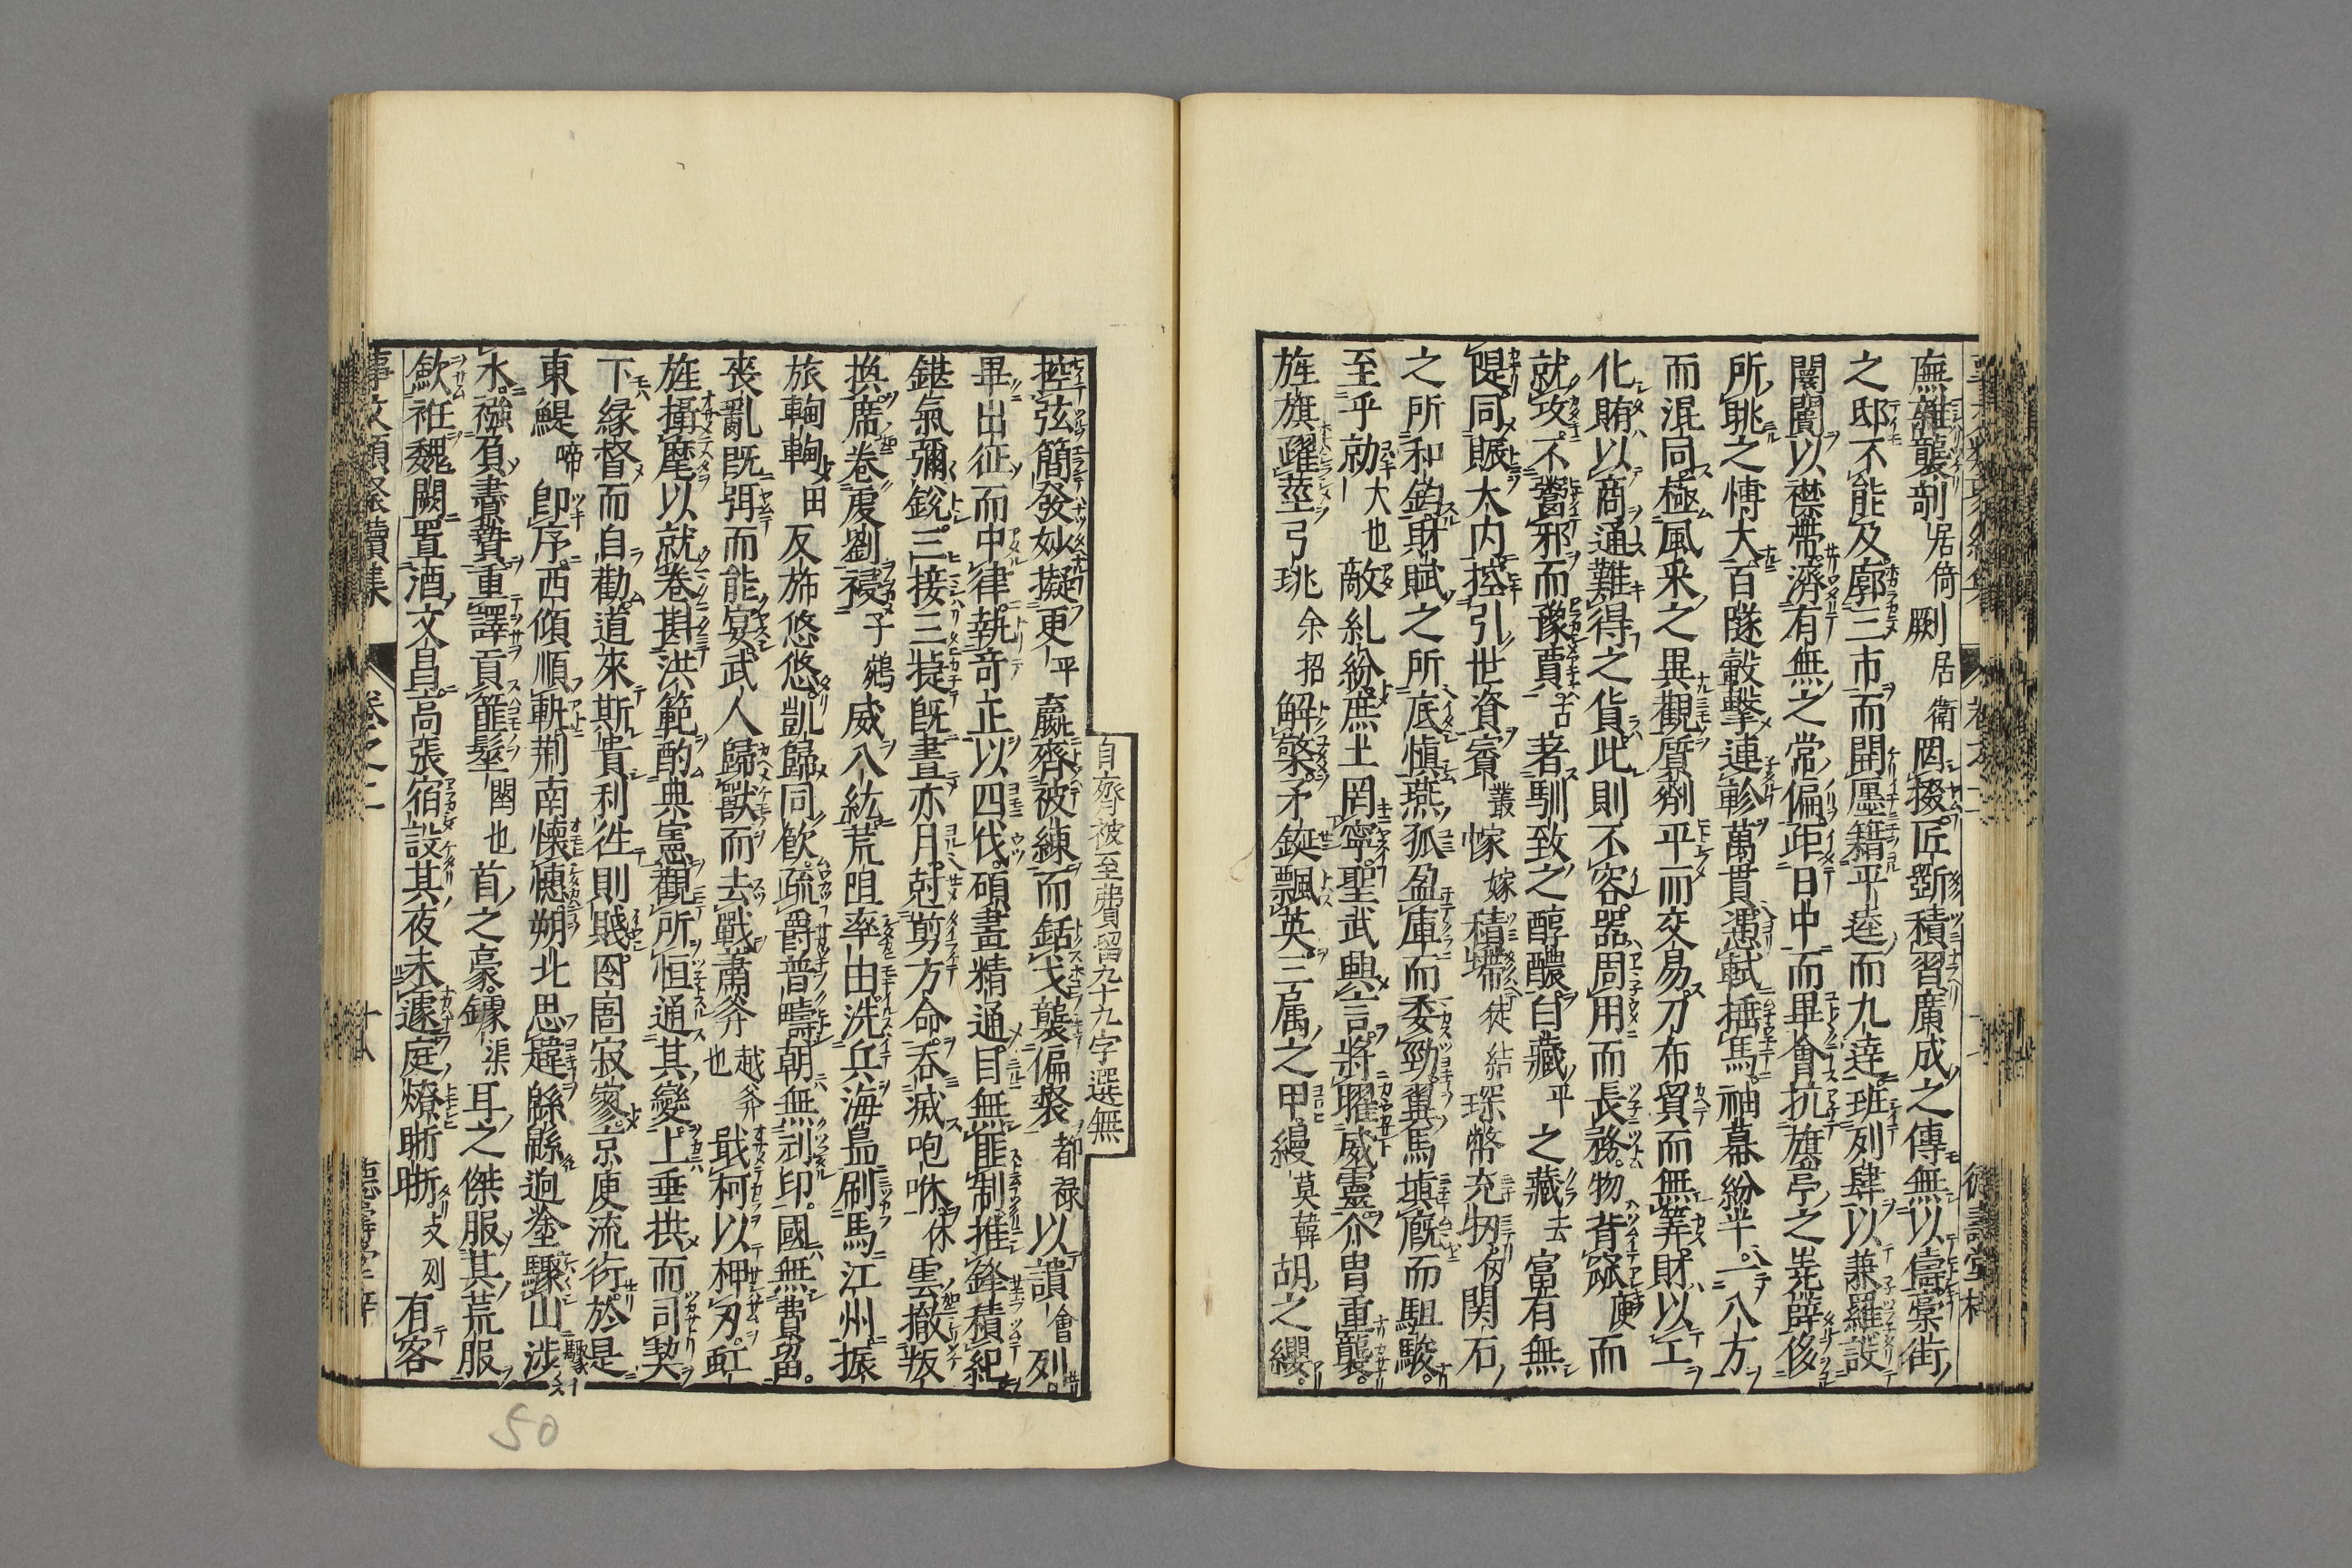 廡雜襲剞居倚劂居衛罔掇匠斲積習廣成之傳無以儔槀街
之邸不能及廓三市而開廛籍平逵而九逵班列肆以兼羅設
闤闠以襟帶濟有無之常偏距日中而畢會抗旗亭之嶤薛侈
所眺之博大百隧轂擊連軫萬貫憑軾捶馬袖幕紛半一八方
而混同極風采之異觀質劑平而交易刀布貿而無筭財以工
化賄以商通難得之貨此則不容器周用而長務物背窳庾而
就攻不鬻邪而豫賈古著馴致之醇醲白藏平之藏去富有無
隄同賑大内控引世資賨叢幏嫁積墆徒結琛幣充牣関石
之所和鈞財賦之所底慎燕弧盈庫而委勁冀馬塡廐而駔駿
至乎勍大也敵糺紛庶土罔寧聖武興言將曜威靈介胄重襲
旌旗躍莖弓珧余招解檠矛鋋飄英三属之甲縵莫韓胡之纓
自齊被至費留九十九字選無
控弦簡發妙擬更平嬴齊被練而銛戈襲偏裻都禄以讃會列
畢出征而中律執奇正以四伐碩畫精通目無匪制推鋒積紀
鋩氣彌銳三接三捷旣晝亦月尅剪方命吞滅咆咻休雲撤叛
換席卷虔劉祲子鴆威八紘荒阻率由洗兵海島刷馬江州振
旅輷輷田反旆悠悠凱歸同飲疏爵普疇朝無刓印國無費留
喪亂旣弭而能宴武人歸獸而去戰蕭斧越斧也戢柯以柙刃虹
旌攝麾以就卷斟洪範酌典憲觀所恒通其變上垂拱而司契
下縁督而自勸道來斯貴利徃則賤囹圄寂寥京庾流衍於是
東鯷啼卽序西傾順軌荆南懐憓朔北思韙緜緜迥塗驟山渉
水襁負賮贄重譯貢篚髽閏也首之豪鐻渠耳之傑服其荒服
歛衽魏闕置酒文昌高張宿設其夜未遽庭燎晣晣攴列有客
事文類聚續集　卷之二　十八
50